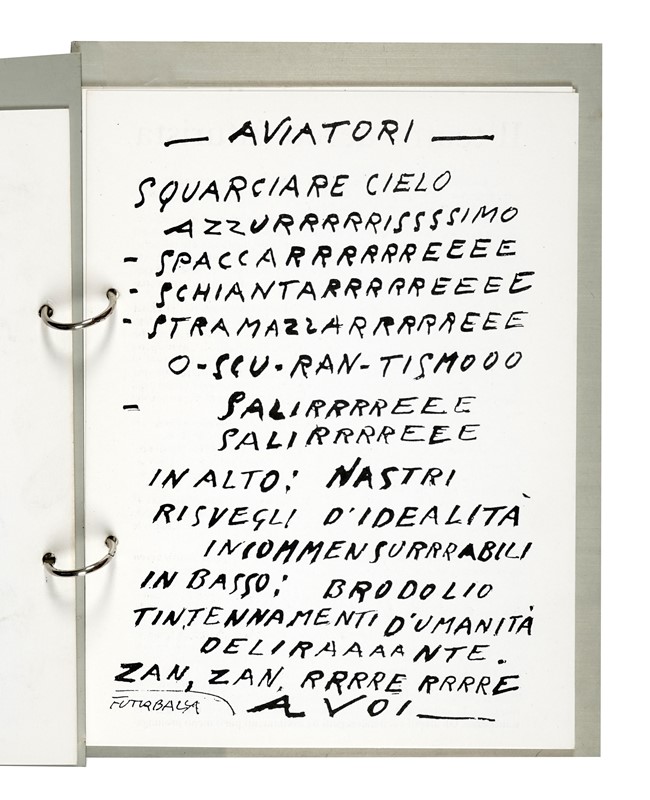 — AVIATORI —
SQUARCIARE CIELO
AZZURRRRRISSSSIMO
- SPACCARRRRRREEEE
- SCHIANTARRRRREEEE
- STRAMAZZARRRRREEE
O-SCU-RAN-TISMOOO
- SALIRRRREEE
SALIRRRREEE
IN ALTO: NASTRI
RISVEGLI D'IDEALITÀ
INCOMMENSURRRABILI
IN BASSO: BRODOLIO
TINTENNAMENTI D'UMANITÀ
DELIRAAAANTE.
ZAN, ZAN, RRRRE RRRRE
FUTURBALLA
A VOI —